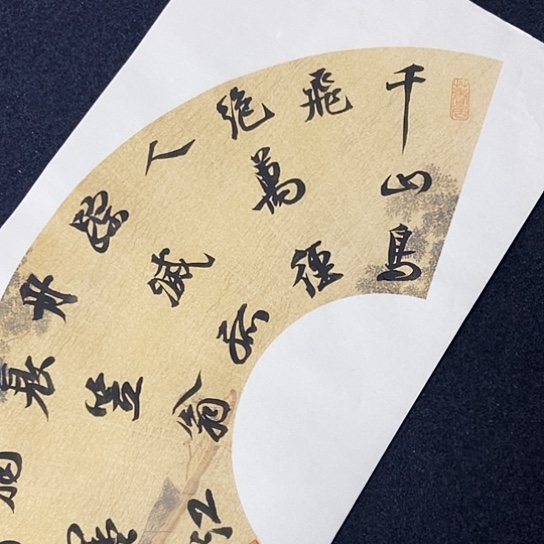 千山鳥
飛
絕萬徑
人
蹤滅孤
舟
蓑笠翁
寒江